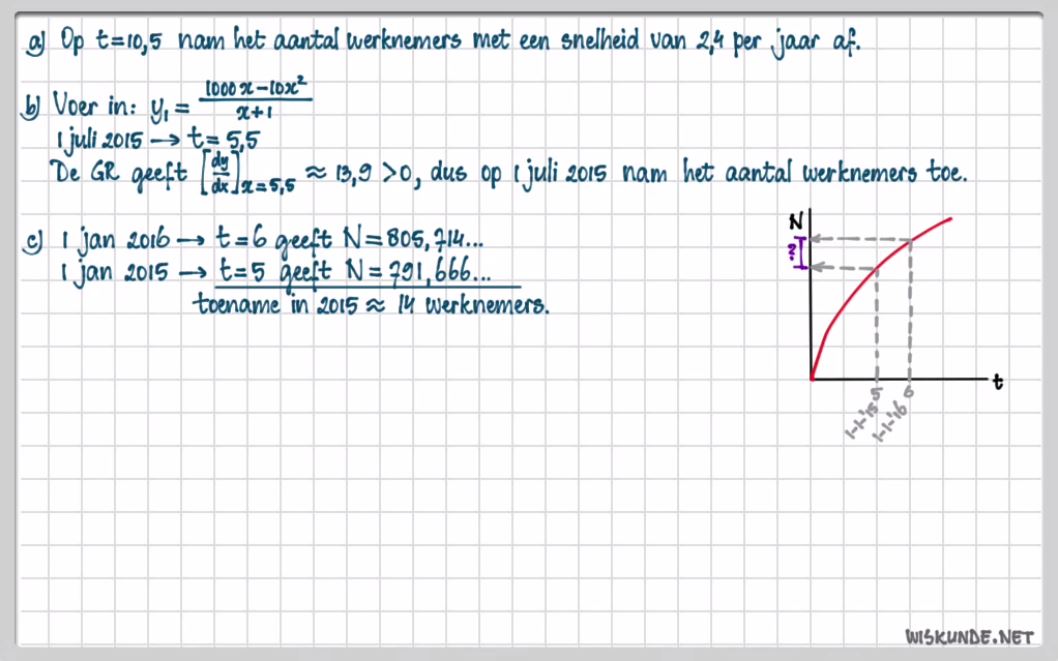 a) Op t=10,5 nam het aantal werknemers met een snelheid van 2,4 per jaar af.
b) Voer in: y₁ = (1000x-10x²)/(x+1)
1 juli 2015 → t=5,5
De GR geeft [dy/dx]x=5,5 ≈ 13,9 >0, dus op 1 juli 2015 nam het aantal werknemers toe.
c) 1 jan 2016 → t=6 geeft N=805,714...
1 jan 2015 → t=5 geeft N=791,666...
toename in 2015 ≈ 14 werknemers.
N
?
t
5 6
1-1-'15
1-1-'16
WISKUNDE.NET